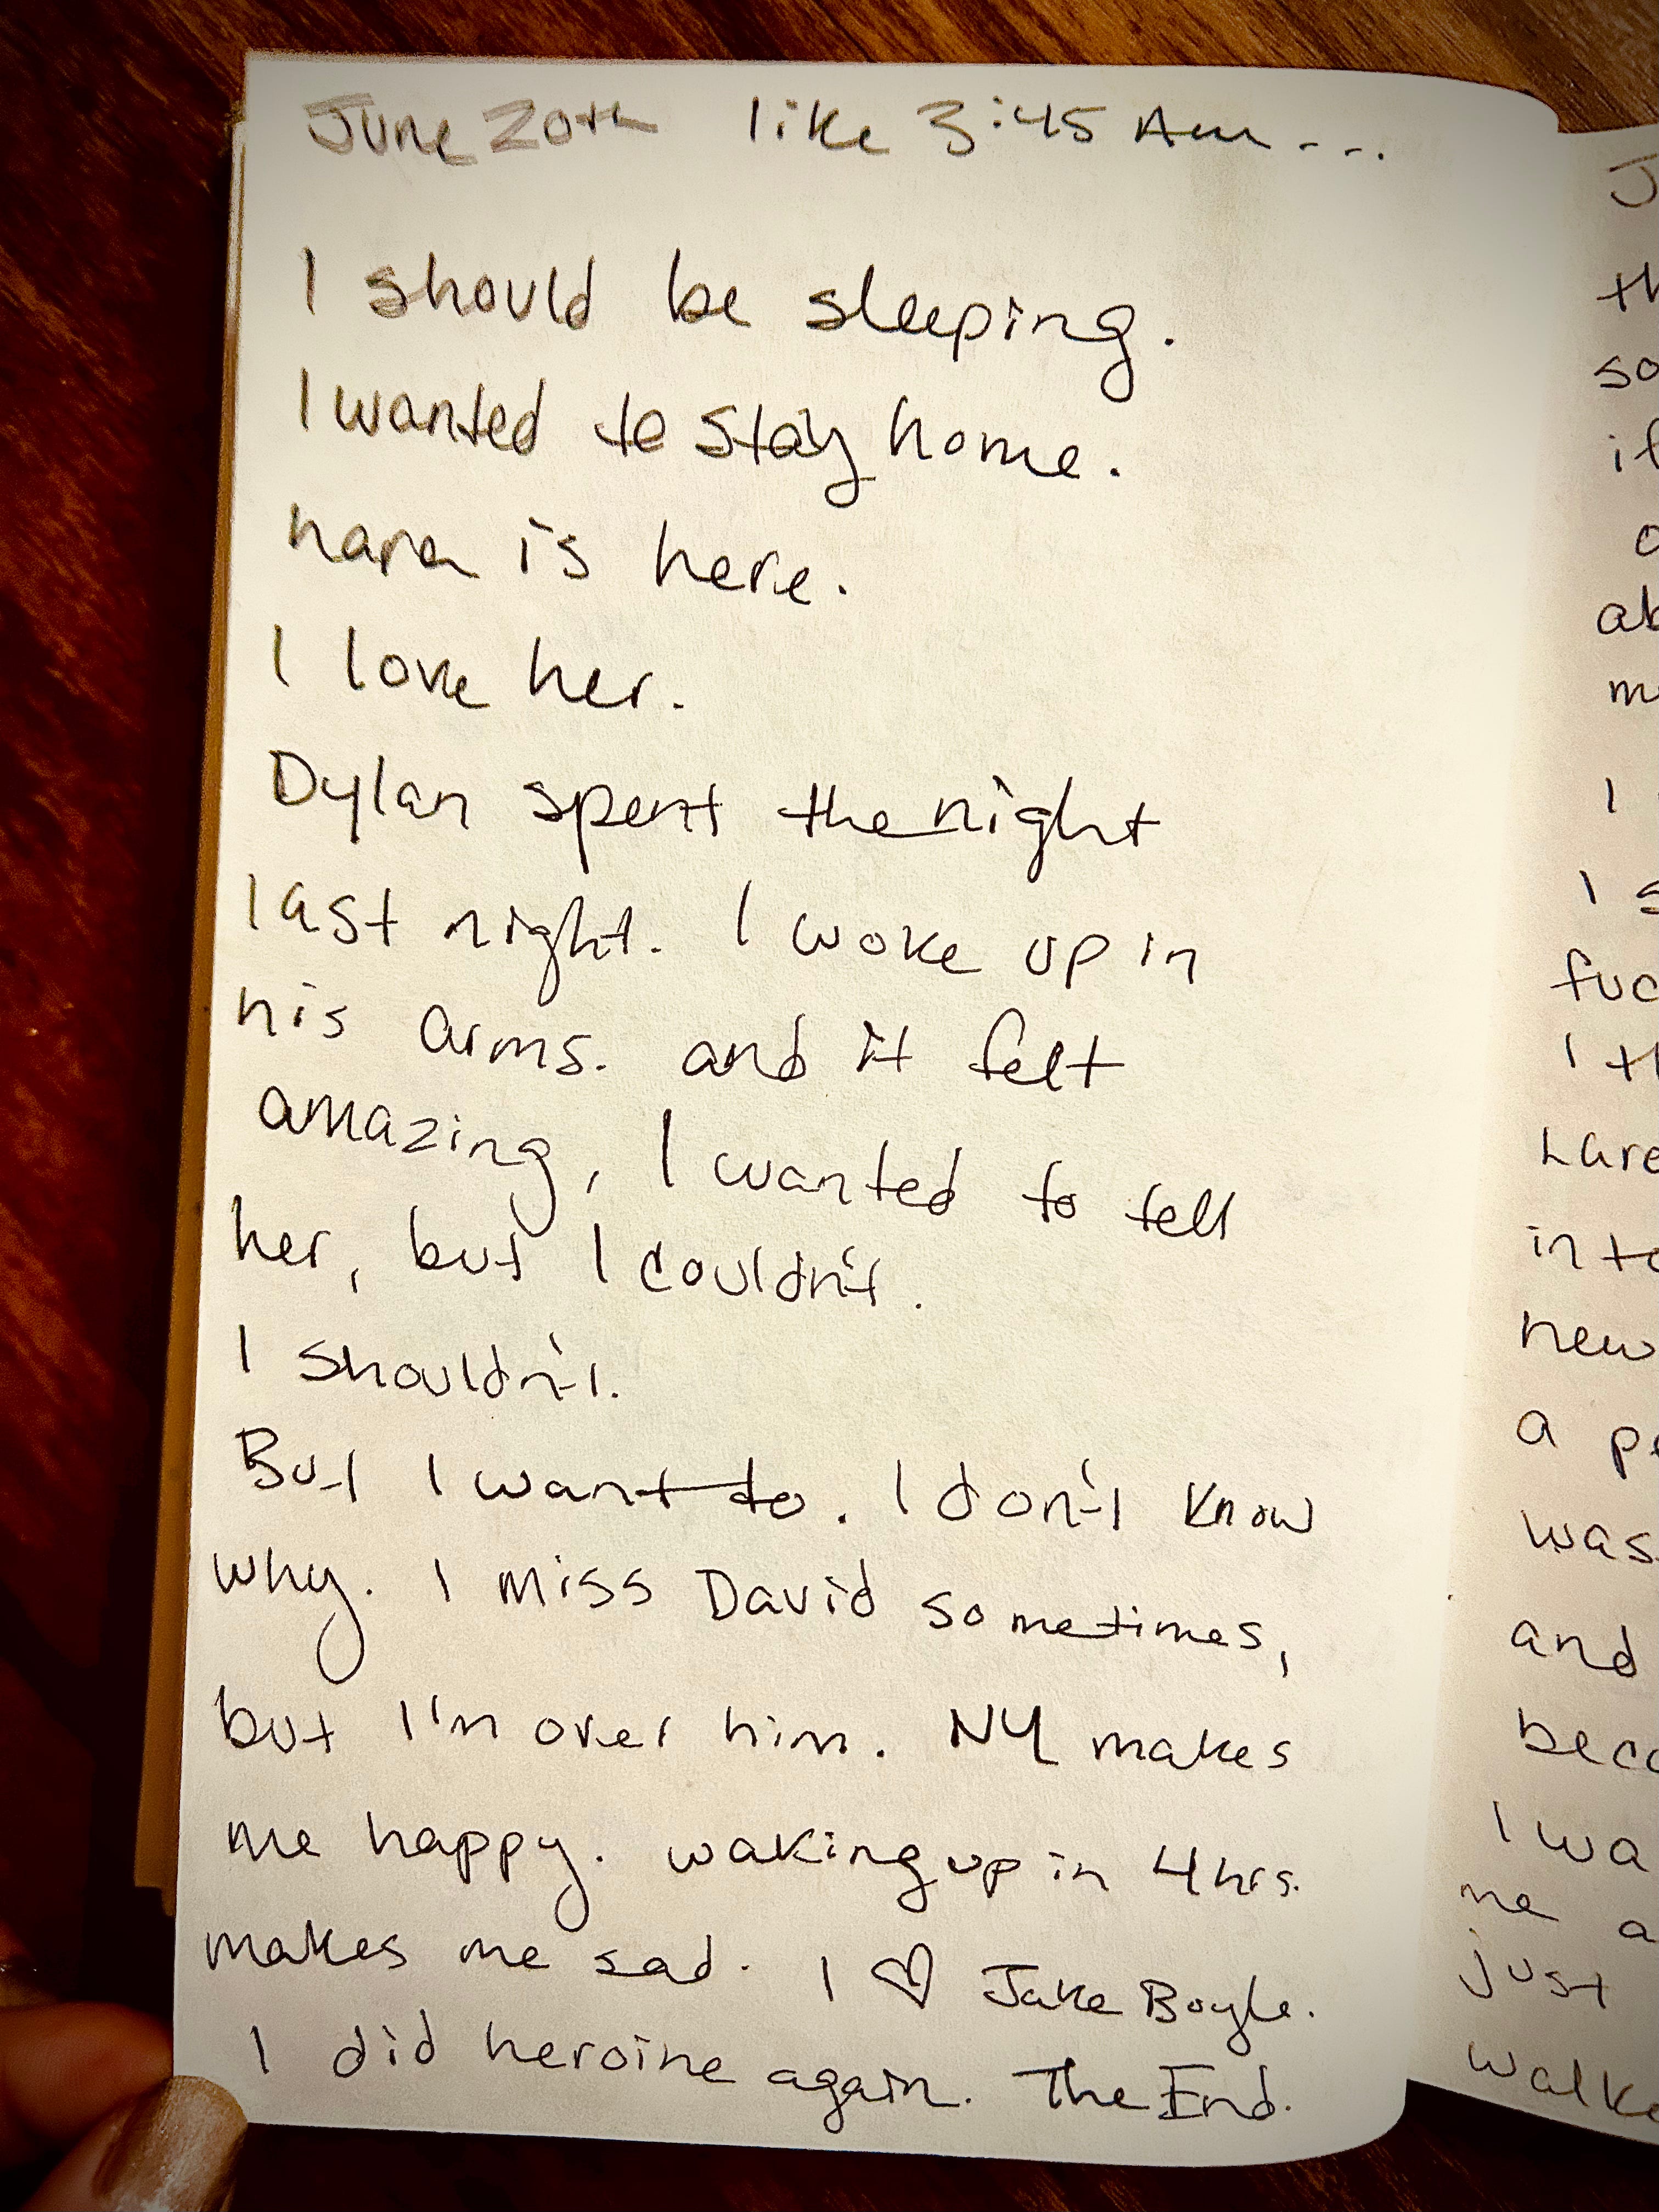 June 20th like 3:45 Am...
I should be sleeping.
I wanted to stay home.
nara is here.
I love her.
Dylan spent the night
last night. I woke up in
his arms. and it felt
amazing, I wanted to tell
her, but I couldn't.
I shouldn't.
But I want to. I don't know
why. I miss David sometimes,
but I'm over him. NY makes
me happy. waking up in 4 hrs.
makes me sad. I ♡ Jake Boyle.
I did heroine again. The End.
J
th
so
if
ab
m
I
I s
fuc
I th
Lare
into
new
a pe
was
and
beca
I wa
me a
just
walke